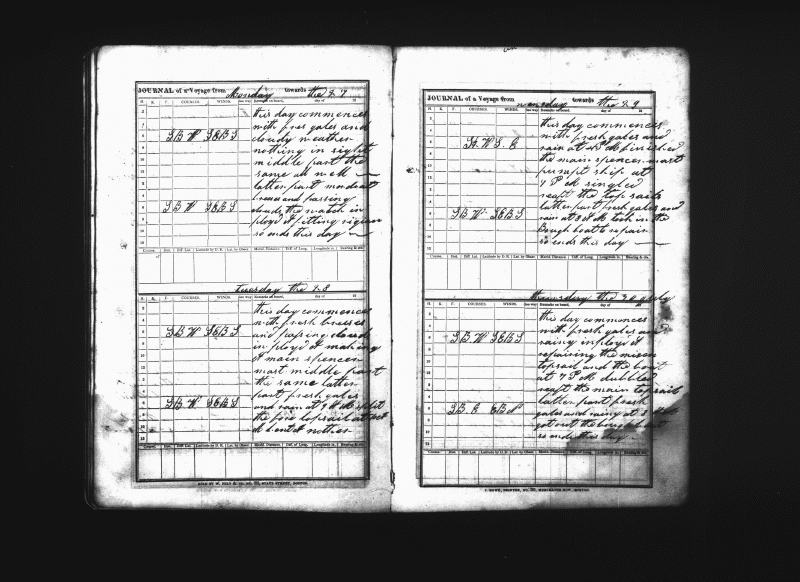 JOURNAL of a Voyage from Monday towards the 27
H. K. F. COURSES. WINDS. Remarks on board, day of 18
this day commences
with fresh gales and
S B W S E B S cloudy weather
nothing in sight
middle part the
same all well
latter part moderate
breeses and passing
S B W S E B S clouds the watch in
ployd
so ends this day
Course. Dist. Diff. Lat. Latitude by D. R. Lat. by Obser. Merid. Distance. Diff. of Long. Longitude in. Bearing & dis.
tuesday the 28
H. K. F. COURSES. WINDS. Remarks on board, day of 18
this day commences
with fresh breeses
S B W S E B S and passing clouds
in ployd at making
a main spencer
mast middle part
the same latter
part fresh gales
S B W S E B S and rain at 9 A M split
the fore topsail
Course. Dist. Diff. Lat. Latitude by D. R. Lat. by Obser. Merid. Distance. Diff. of Long. Longitude in. Bearing & dis.
STATE STREET, BOSTON.
JOURNAL of a Voyage from towards the 29
H. K. F. COURSES. WINDS. Remarks on board, day of 18
this day commences
with fresh gales and
rain at 4 P M finished
the main spencer mast
pumpt ship at
7 P M singled
reaft the top sails
latter part fresh gales and
S B W S E B S rain at 8 A M took in the
Bough boat to repair
so ends this day
Course. Dist. Diff. Lat. Latitude by D. R. Lat. by Obser. Merid. Distance. Diff. of Long. Longitude in. Bearing & dis.
the 30
H. K. F. COURSES. WINDS. Remarks on board, day of 18
this day commences
with fresh gales and
S B W S E B S rainy inployd
repairing the misen
topsail and the boat
at 7 P M dubbled
reaft the main topsail
latter part fresh
S B E E B N gales and rainy at
got out the bough boat
so ends this day
Course. Dist. Diff. Lat. Latitude by D. R. Lat. by Obser. Merid. Distance. Diff. of Long. Longitude in. Bearing & dis.